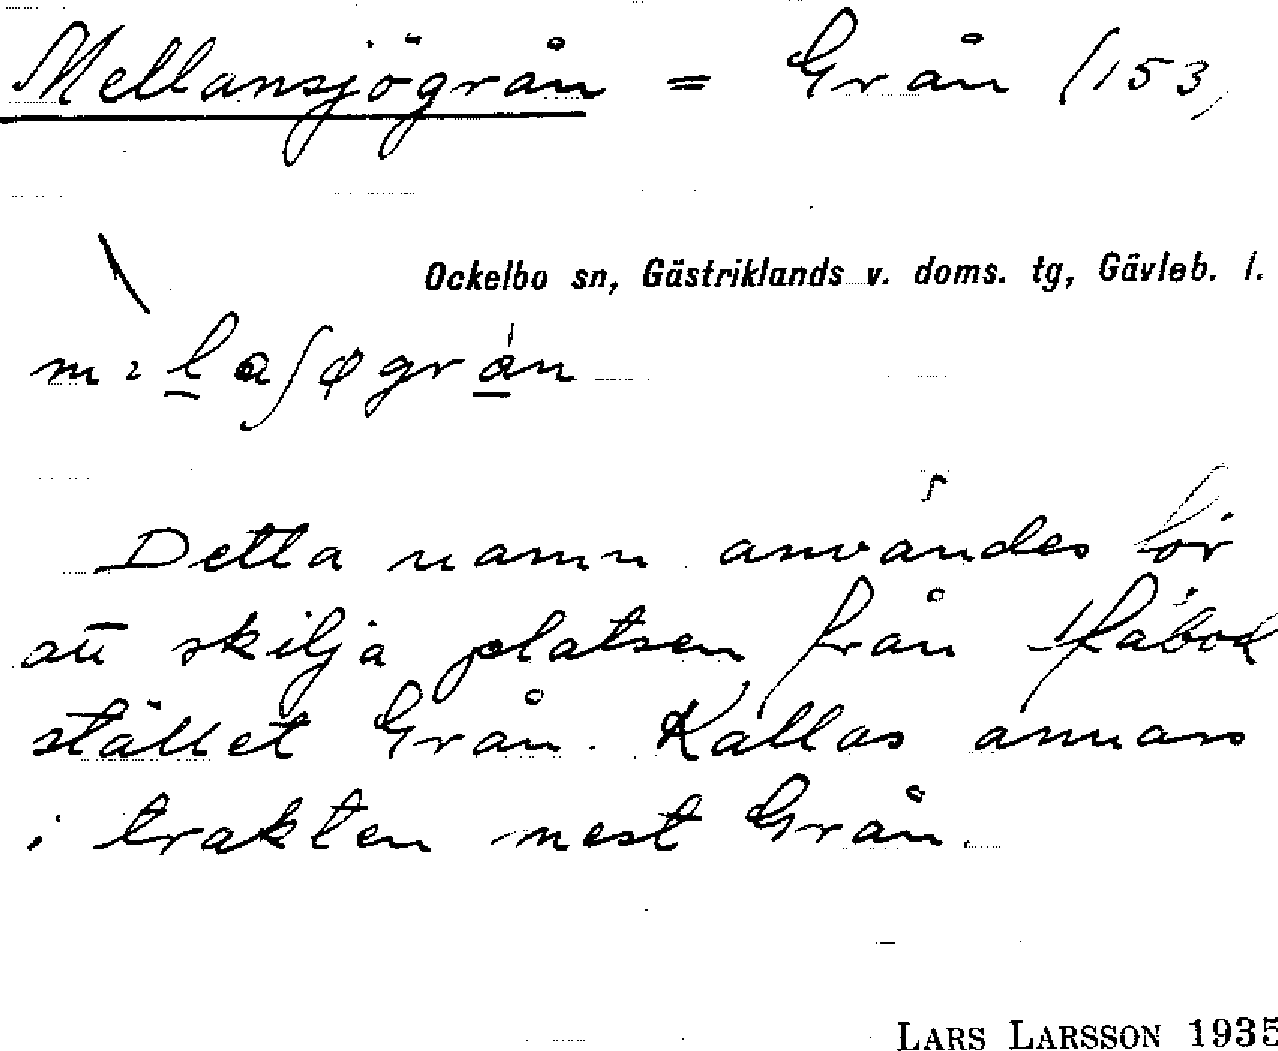 Mellansjögrån = Grån (153,
Ockelbo sn, Gästriklands v. doms. tg, Gävleb. l.
Detta namn användes för
att skilja platsen från fäbod
stället Grån. Kallas annars
i trakten mest Grån.
LARS LARSSON 1935